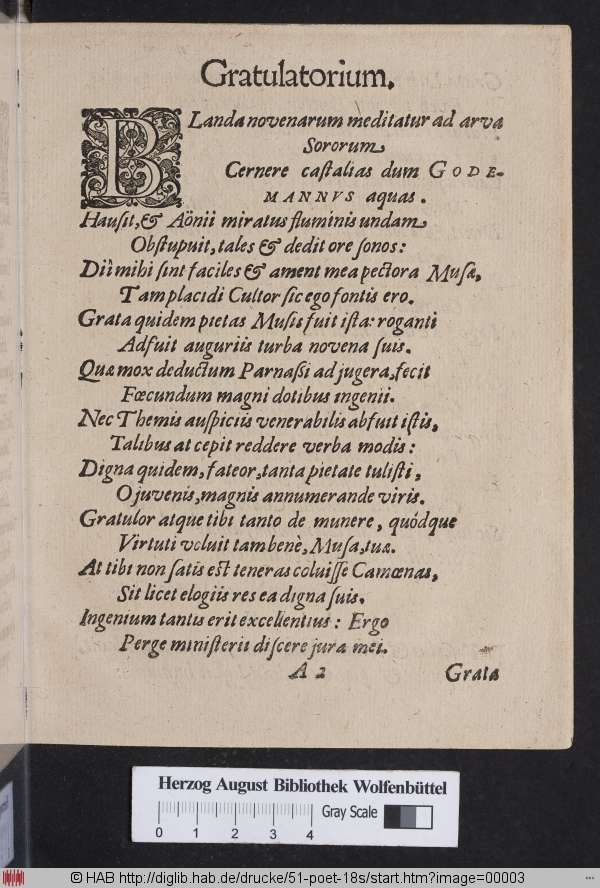 Gratulatorium.
BLanda novenarum meditatur ad arva
Sororum
Cernere castalias dum GODE-
MANNVS aquas.
Hausit, & Aönii miratus fluminis undam
Obstupuit, tales & dedit ore sonos:
Dii mihi sint faciles & ament mea pectora Musæ,
Tam placidi Cultor sic ego fontis ero.
Grata quidem pietas Musis fuit ista: roganti
Adfuit auguriis turba novena suis.
Quæ mox deductum Parnassi ad jugera, fecit
Fœcundum magni dotibus ingenii.
Nec Themis auspiciis venerabilis abfuit istis,
Talibus at cepit reddere verba modis:
Digna quidem, fateor, tanta pietate tulisti,
O juvenis, magnis annumerande viris.
Gratulor atque tibi tanto de munere, quódque
Virtuti voluit tam benè, Musa, tuæ.
At tibi non satis est teneras coluisse Camœnas,
Sit licet elogiis res ea digna suis.
Ingenium tantis erit excellentius: Ergo
Perge ministerii discere jura mei.
A 2 Grata
Herzog August Bibliothek Wolfenbüttel
Gray Scale
0 1 2 3 4
© HAB http://diglib.hab.de/drucke/51-poet-18s/start.htm?image=00003